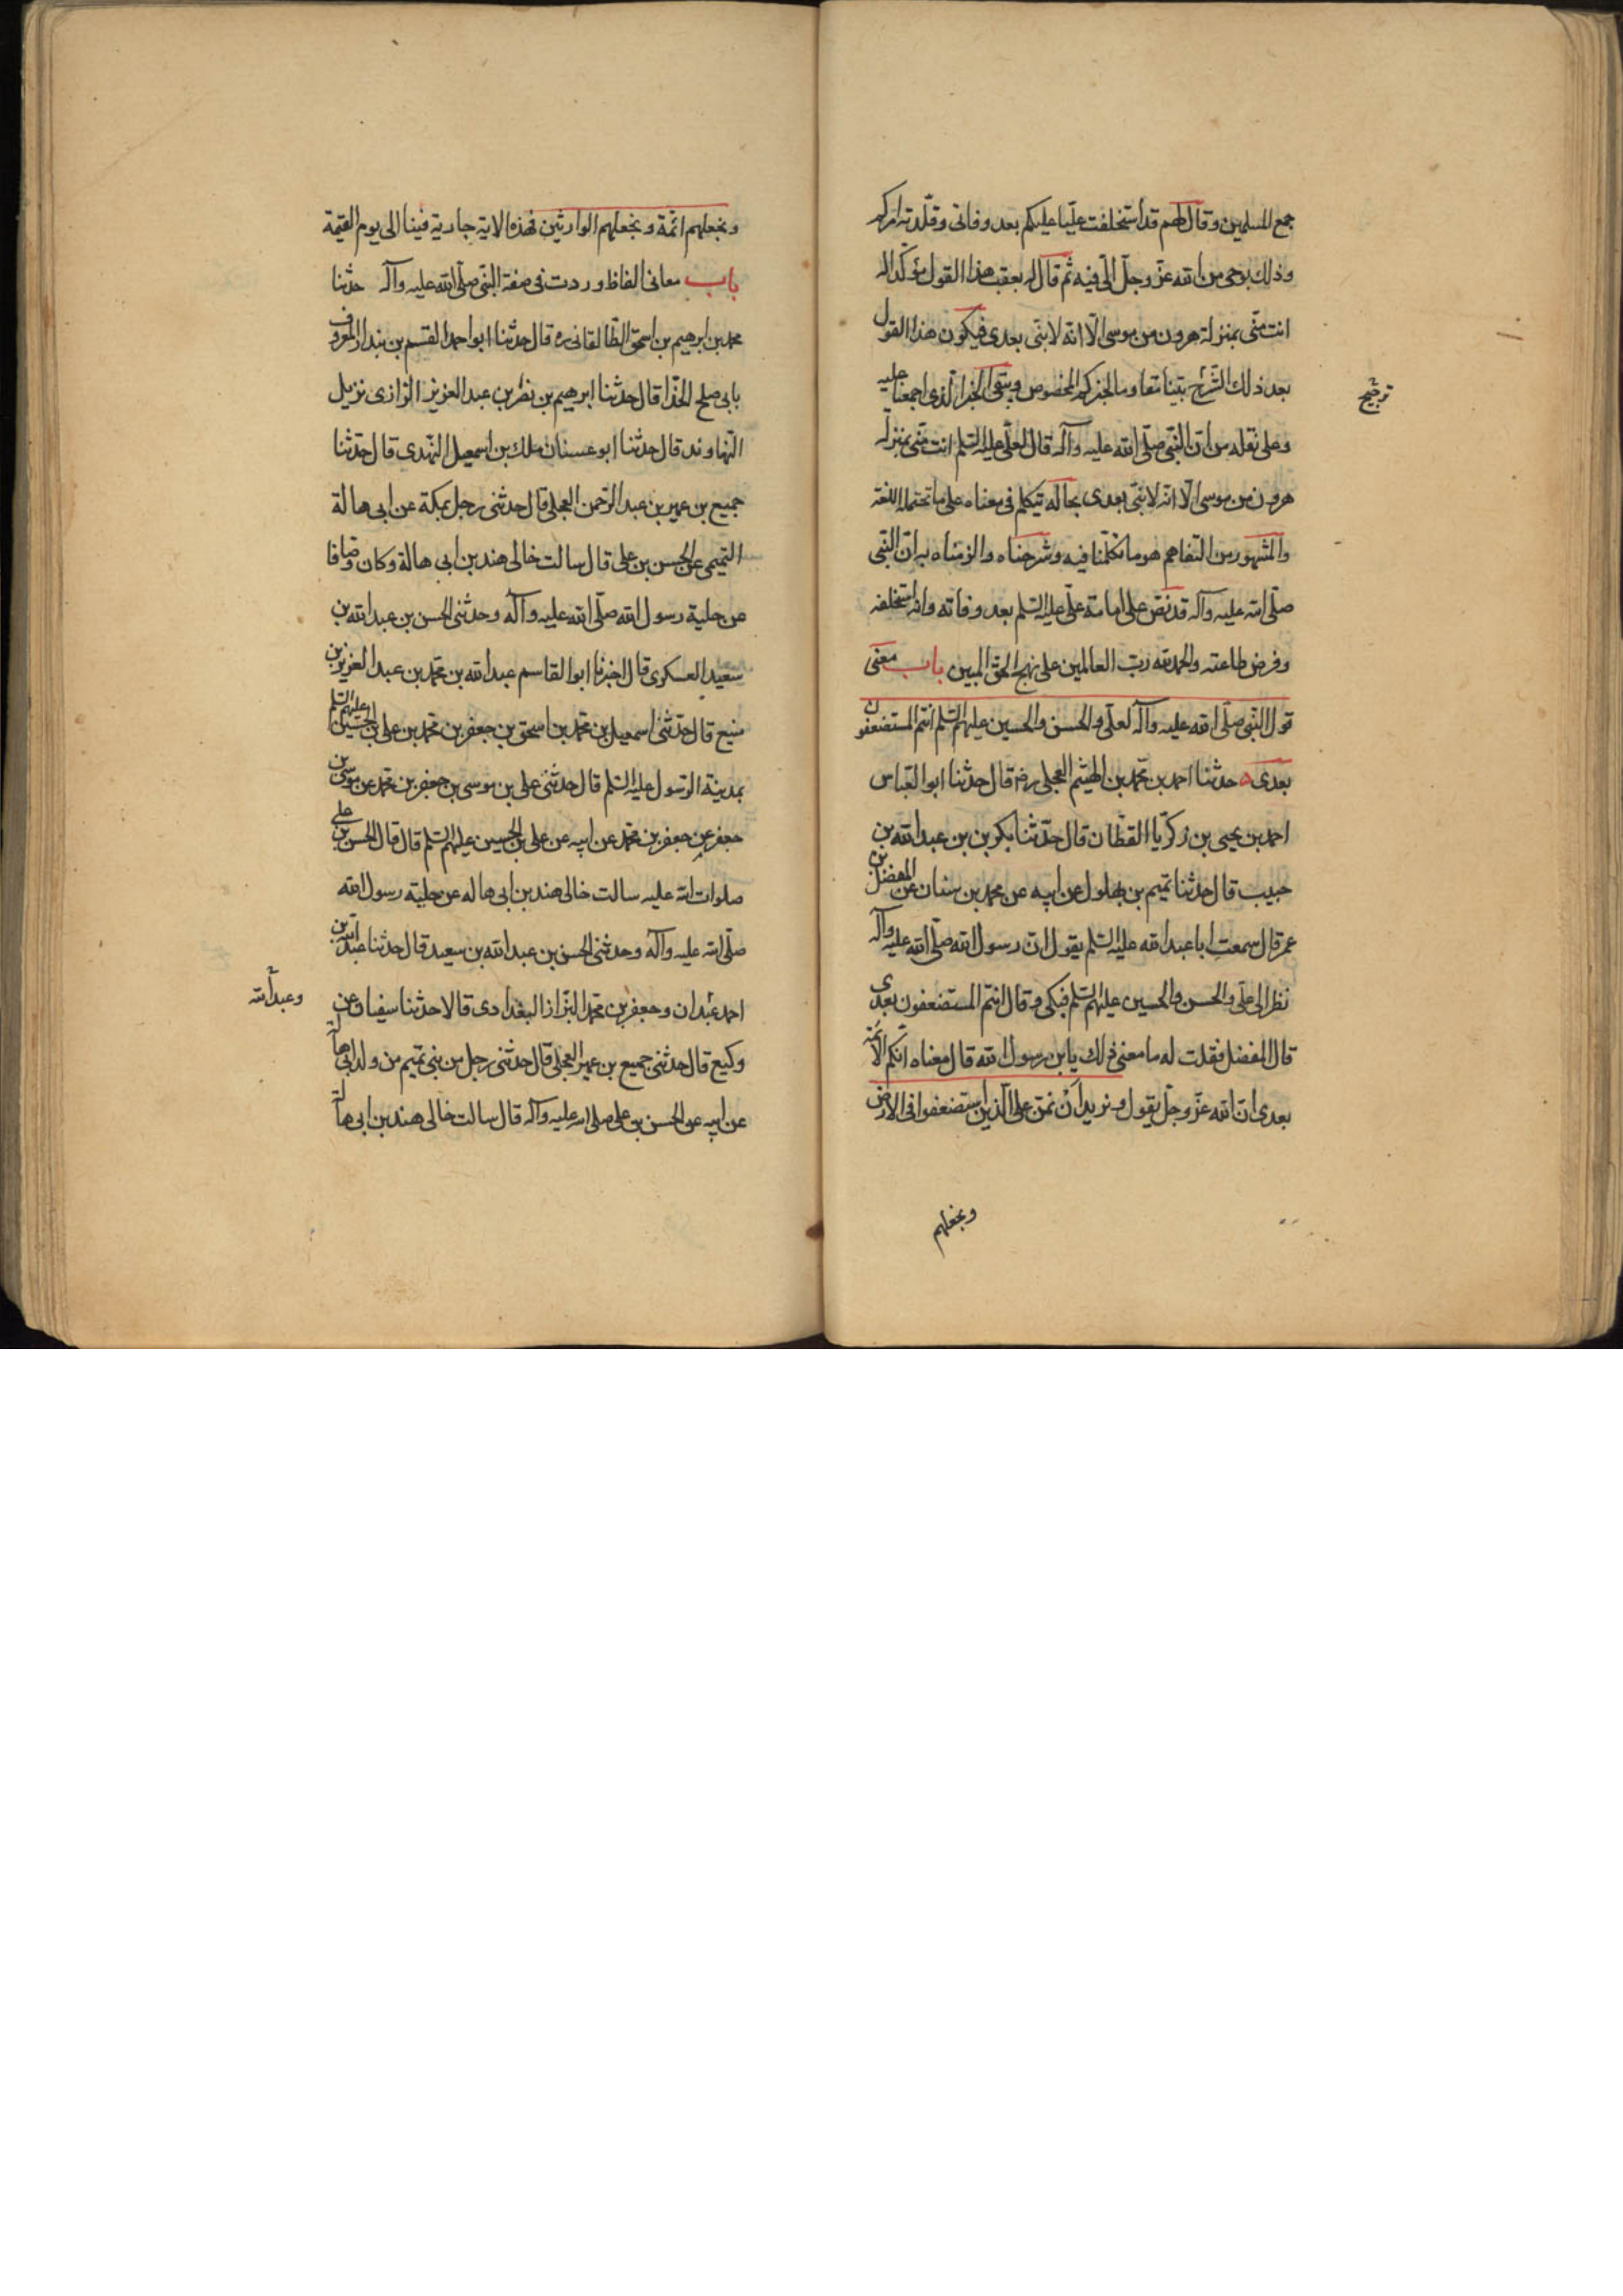 جمع المسلمين وقال لهم قد استخلفت عليّا عليكم بعد وفاتى وقلّدته امركم
وذلك بوحى من الله عزّ وجلّ الىّ فيه ثم قال له بعقب هذا القول مؤكّدا له
انت منّى بمنزلة هرون من موسى الّا انّه لا نبىّ بعدى فيكون هذا القول
بعد ذلك الشّرح بيّنا
ترجيح
وعلى نقله من ان النّبىّ صلّى الله عليه وآله قال لعلىّ عليه السّلم انت منّى بمنزلة
هرون من موسى الّا انّه لا نبىّ بعدى بحاله يتكلم فى معناه على ما تحتمله اللغة
والمشهور من التفاهم هو ما تكلّمنا فيه وشرحناه والزمناه به ان النّبى
صلّى الله عليه وآله قد نصّ على امامة علىّ عليه السّلم بعد وفاته وانه استخلفه
وفرض طاعته والحمد لله ربّ العالمين على نهج الحقّ المبين باب معنى
قول النّبى صلّى الله عليه وآله لعلّى والحسن والحسين عليهم السّلم انتم المستضعفون
بعدى ه حدثنا احمد بن محمّد بن الهيثم العجلى رضه قال حدثنا ابو العبّاس
احمد بن يحيى بن زكريّا القطّان قال حدّثنا بكر بن عبد الله بن
حبيب قال حدثنا تميم بن بهلول عن ابيه عن محمد بن سنان عن المفضل بن
عمر قال سمعت ابا عبد الله عليه السّلم يقول انّ رسول الله صلّى الله عليه وآله
نظر الى علّى والحسن والحسين عليهم السّلم فبكى وقال انتم المستضعفون بعدى
قال المفضل فقلت له ما معنى ذلك يا بن رسول الله قال معناه انّكم الائمّة
بعدى انّ الله عزّ وجلّ يقول ونريد ان نمنّ على الّذين استضعفوا فى الارض
ونجعلهم
ونجعلهم ائمّة ونجعلهم الوارثين فهذه الاية جارية فينا الى يوم القيمة
باب معانى الفاظ وردت فى صفة النّبى صلّى الله عليه وآله حدثنا
محمد بن ابرهيم بن اسحق الطّالقانى ره قال حدثنا ابو احمد القسم بن بندار المعروف
بابى صلح الحذّا قال حدثنا ابرهيم بن نصر بن عبد العزيز الرّازى نزيل
النّهاوند قال حدثنا ابو غسنان ملك بن اسمعيل النّهدى قال حدّثنا
جميع بن عمير بن عبد الرّحمن العجلى قال حدثنى رجل بمكّة عن ابى هالة
التّميمى عن الحسن بن على قال سالت خالى هند بن ابى هالة وكان وصّافا
عن حلية رسول الله صلّى الله عليه وآله وحدثنى الحسن بن عبد الله بن
سعيد العسكرى قال اخبرنا ابو القاسم عبد الله بن محمّد بن عبد العزيز بن
منيع قال حدّثنى اسمعيل بن محمّد بن اسحق بن جعفر بن محمّد بن على بن الحسين عليهم السّلم
بمدينة الرّسول عليه السّلم قال حدثنى على بن موسى بن جعفر بن محمّد عن موسى بن
جعفر عن جعفر بن محمّد عن ابيه عن على بن الحسين عليهم السّلم قال قال الحسن بن على
صلوات الله عليه سالت خالى هند بن ابى هاله عن حلية رسول الله
صلّى الله عليه وآله وحدثنى الحسن بن عبد الله بن سعيد قال حدثنا عبد الله بن
احمد عبدان وجعفر بن محمّد البزّاز البغدادى قالا حدثنا سفيان عن
وعبد الله
وكيع قال حدثنى جميع بن عمير العجلى قال حدثنى رجل من بنى تميم من ولد ابى هالة
عن ابيه عن الحسن بن على صلى الله عليه وآله قال سالت خالى هند بن ابى هالة